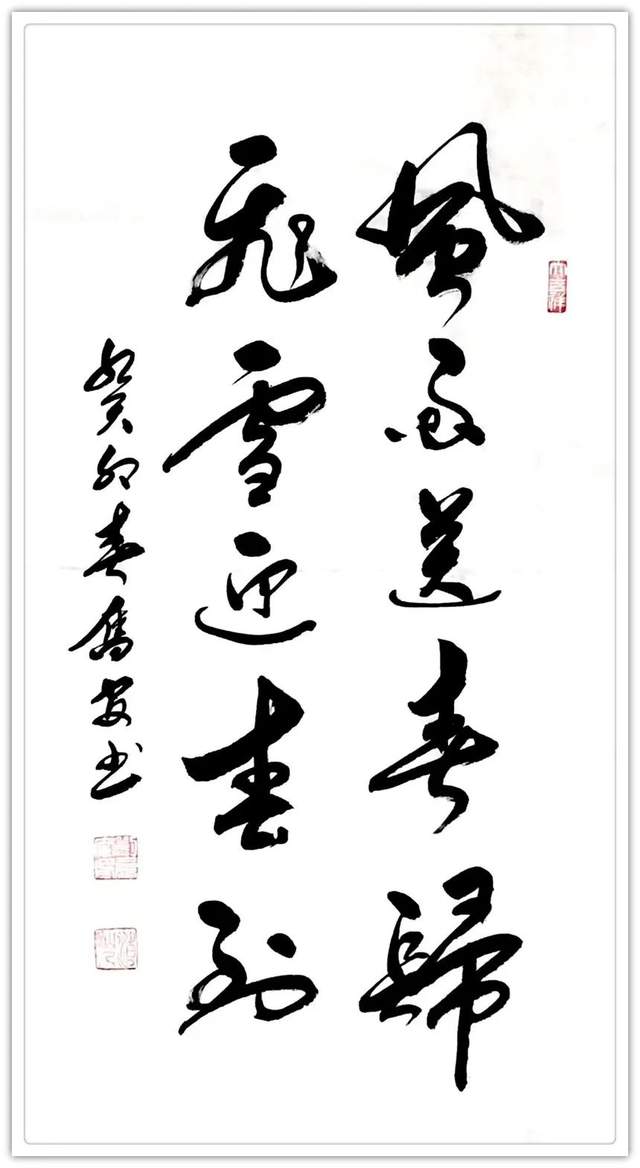 風雨送春歸
飛雪迎春到
癸卯春奮安書